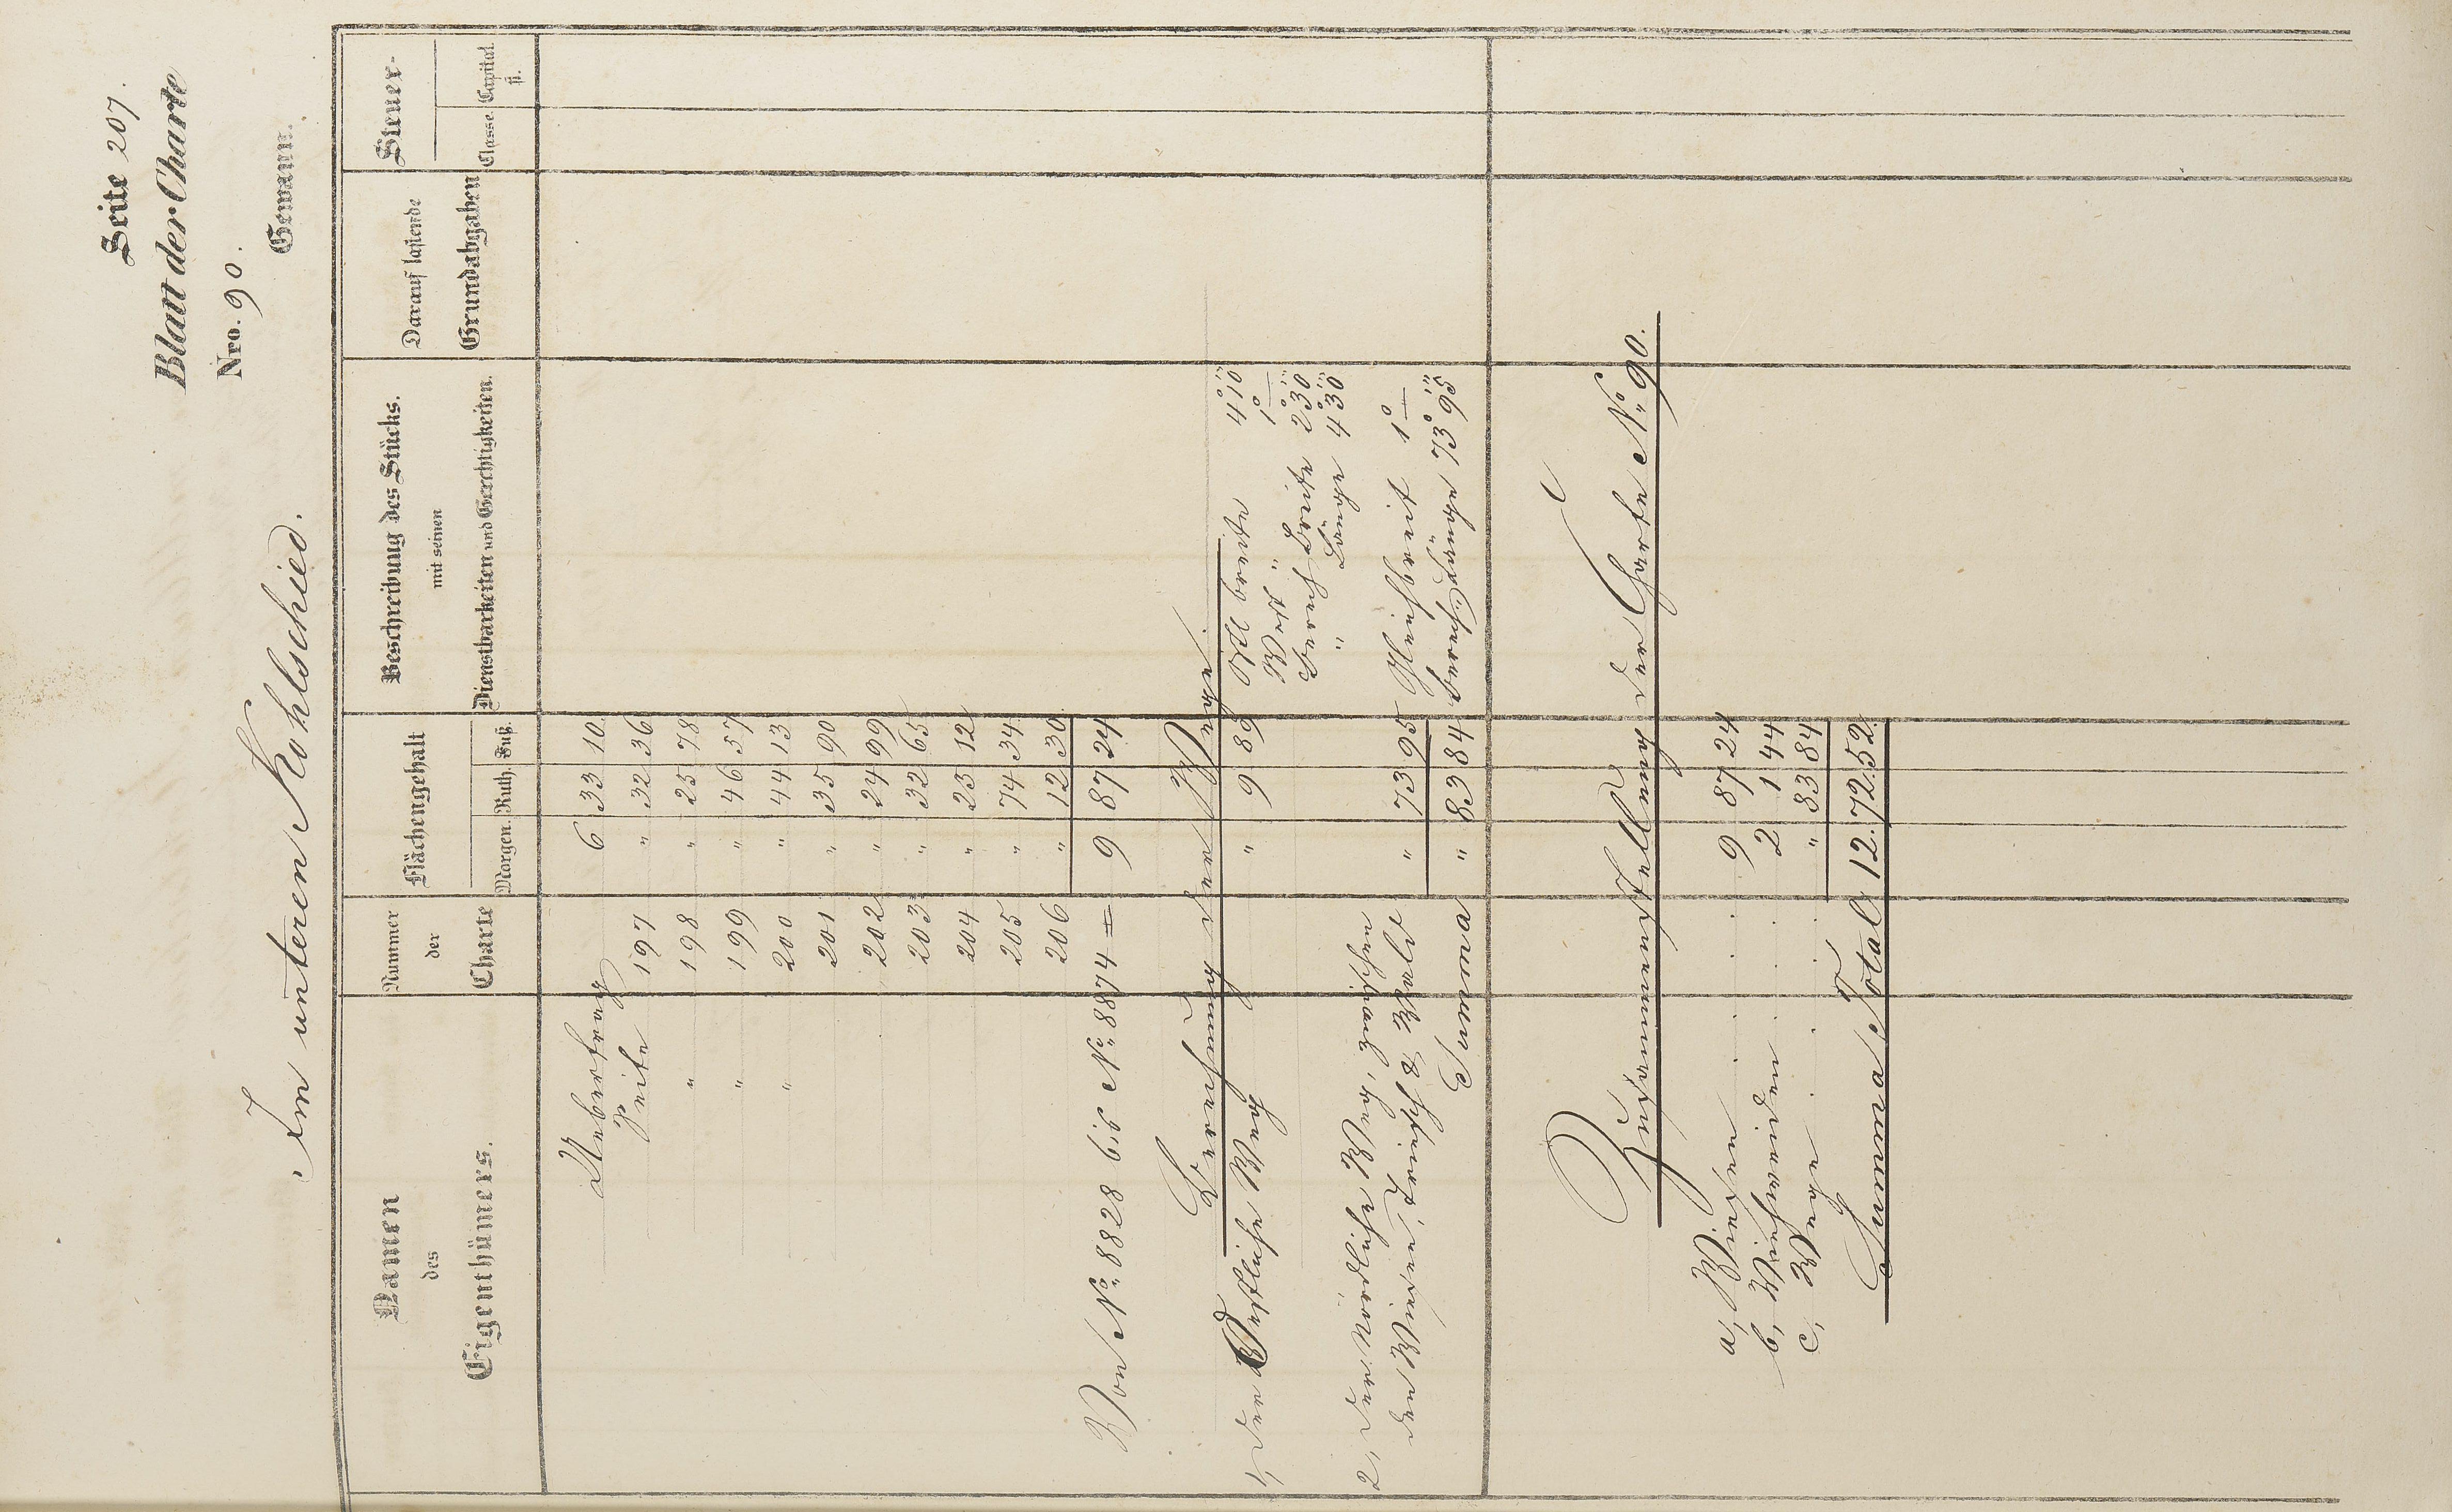 Seite 207.
Blatt der Charte
Nro. 90.
Im unteren Kohlschied. Gewann.
Namen des Eigenthümers.
Nummer der Charte
Flächengehalt
Morgen. Ruth. Fuß.
Beschreibung des Stücks.
mit seinen
Dienstbarkeiten und Gerechtigkeiten.
Darauf lastende
Grundabgaben
Steuer-
Classe. Capital fl.
Uebertrag 6 33 10
Seite 197 " 32 36
" 198 " 25 78
" 199 " 46 57
" 200 " 44 13
201 " 35 90
202 " 24 99
203 " 32 65
204 " 23 12
205 " 74 34
206 " 12 30
Von No. 8828 bis No. 8874 = 9 87 24
Berechnung der Wege.
1, der Oestliche Weg " 9 89 Östl. breite 4° 10'''
West " 1° —
Berech. Breite 2° 30'''
" Länge 4° 30'''
2, der Nördliche Weg, zwischen
den Wiesen, &. Wald " 73 95 Gleichbreit 1° —
Summa " 83 84 berech. Länge 73° 95'''
Zusammenstellung der Charte No. 90.
a, Wiesen . . . 9 87 24
b, Weiden . . . 2 1 44
c, Wege . . . " 83 84
Summa Total 12. 72. 52.